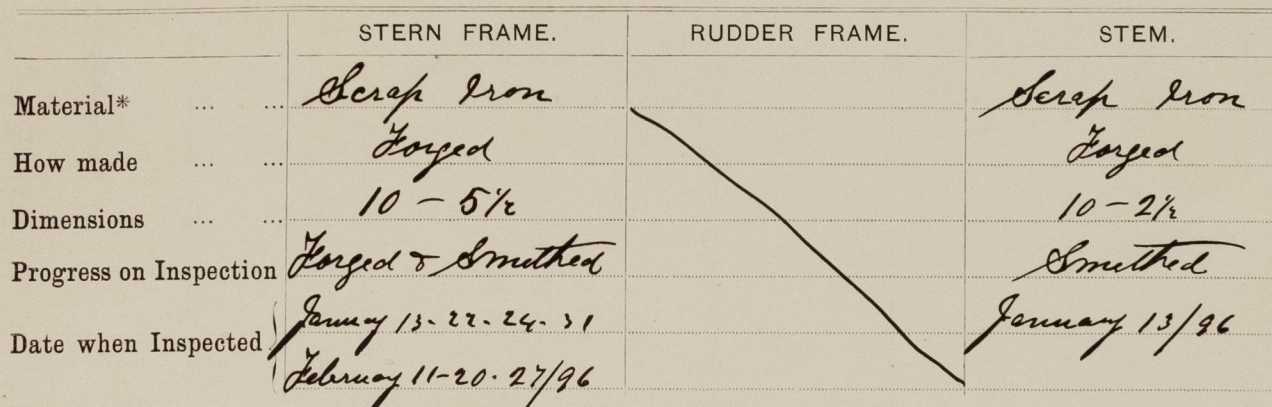 STERN FRAME. RUDDER FRAME. STEM.
Material* ... ... Scrap Iron Scrap Iron
How made ... ... Forged Forged
Dimensions ... ... 10 - 5½ 10 - 2½
Progress on Inspection Forged & Smithed Smithed
Date when Inspected January 13- 22- 24- 31 January 13/96
February 11-20-27/96